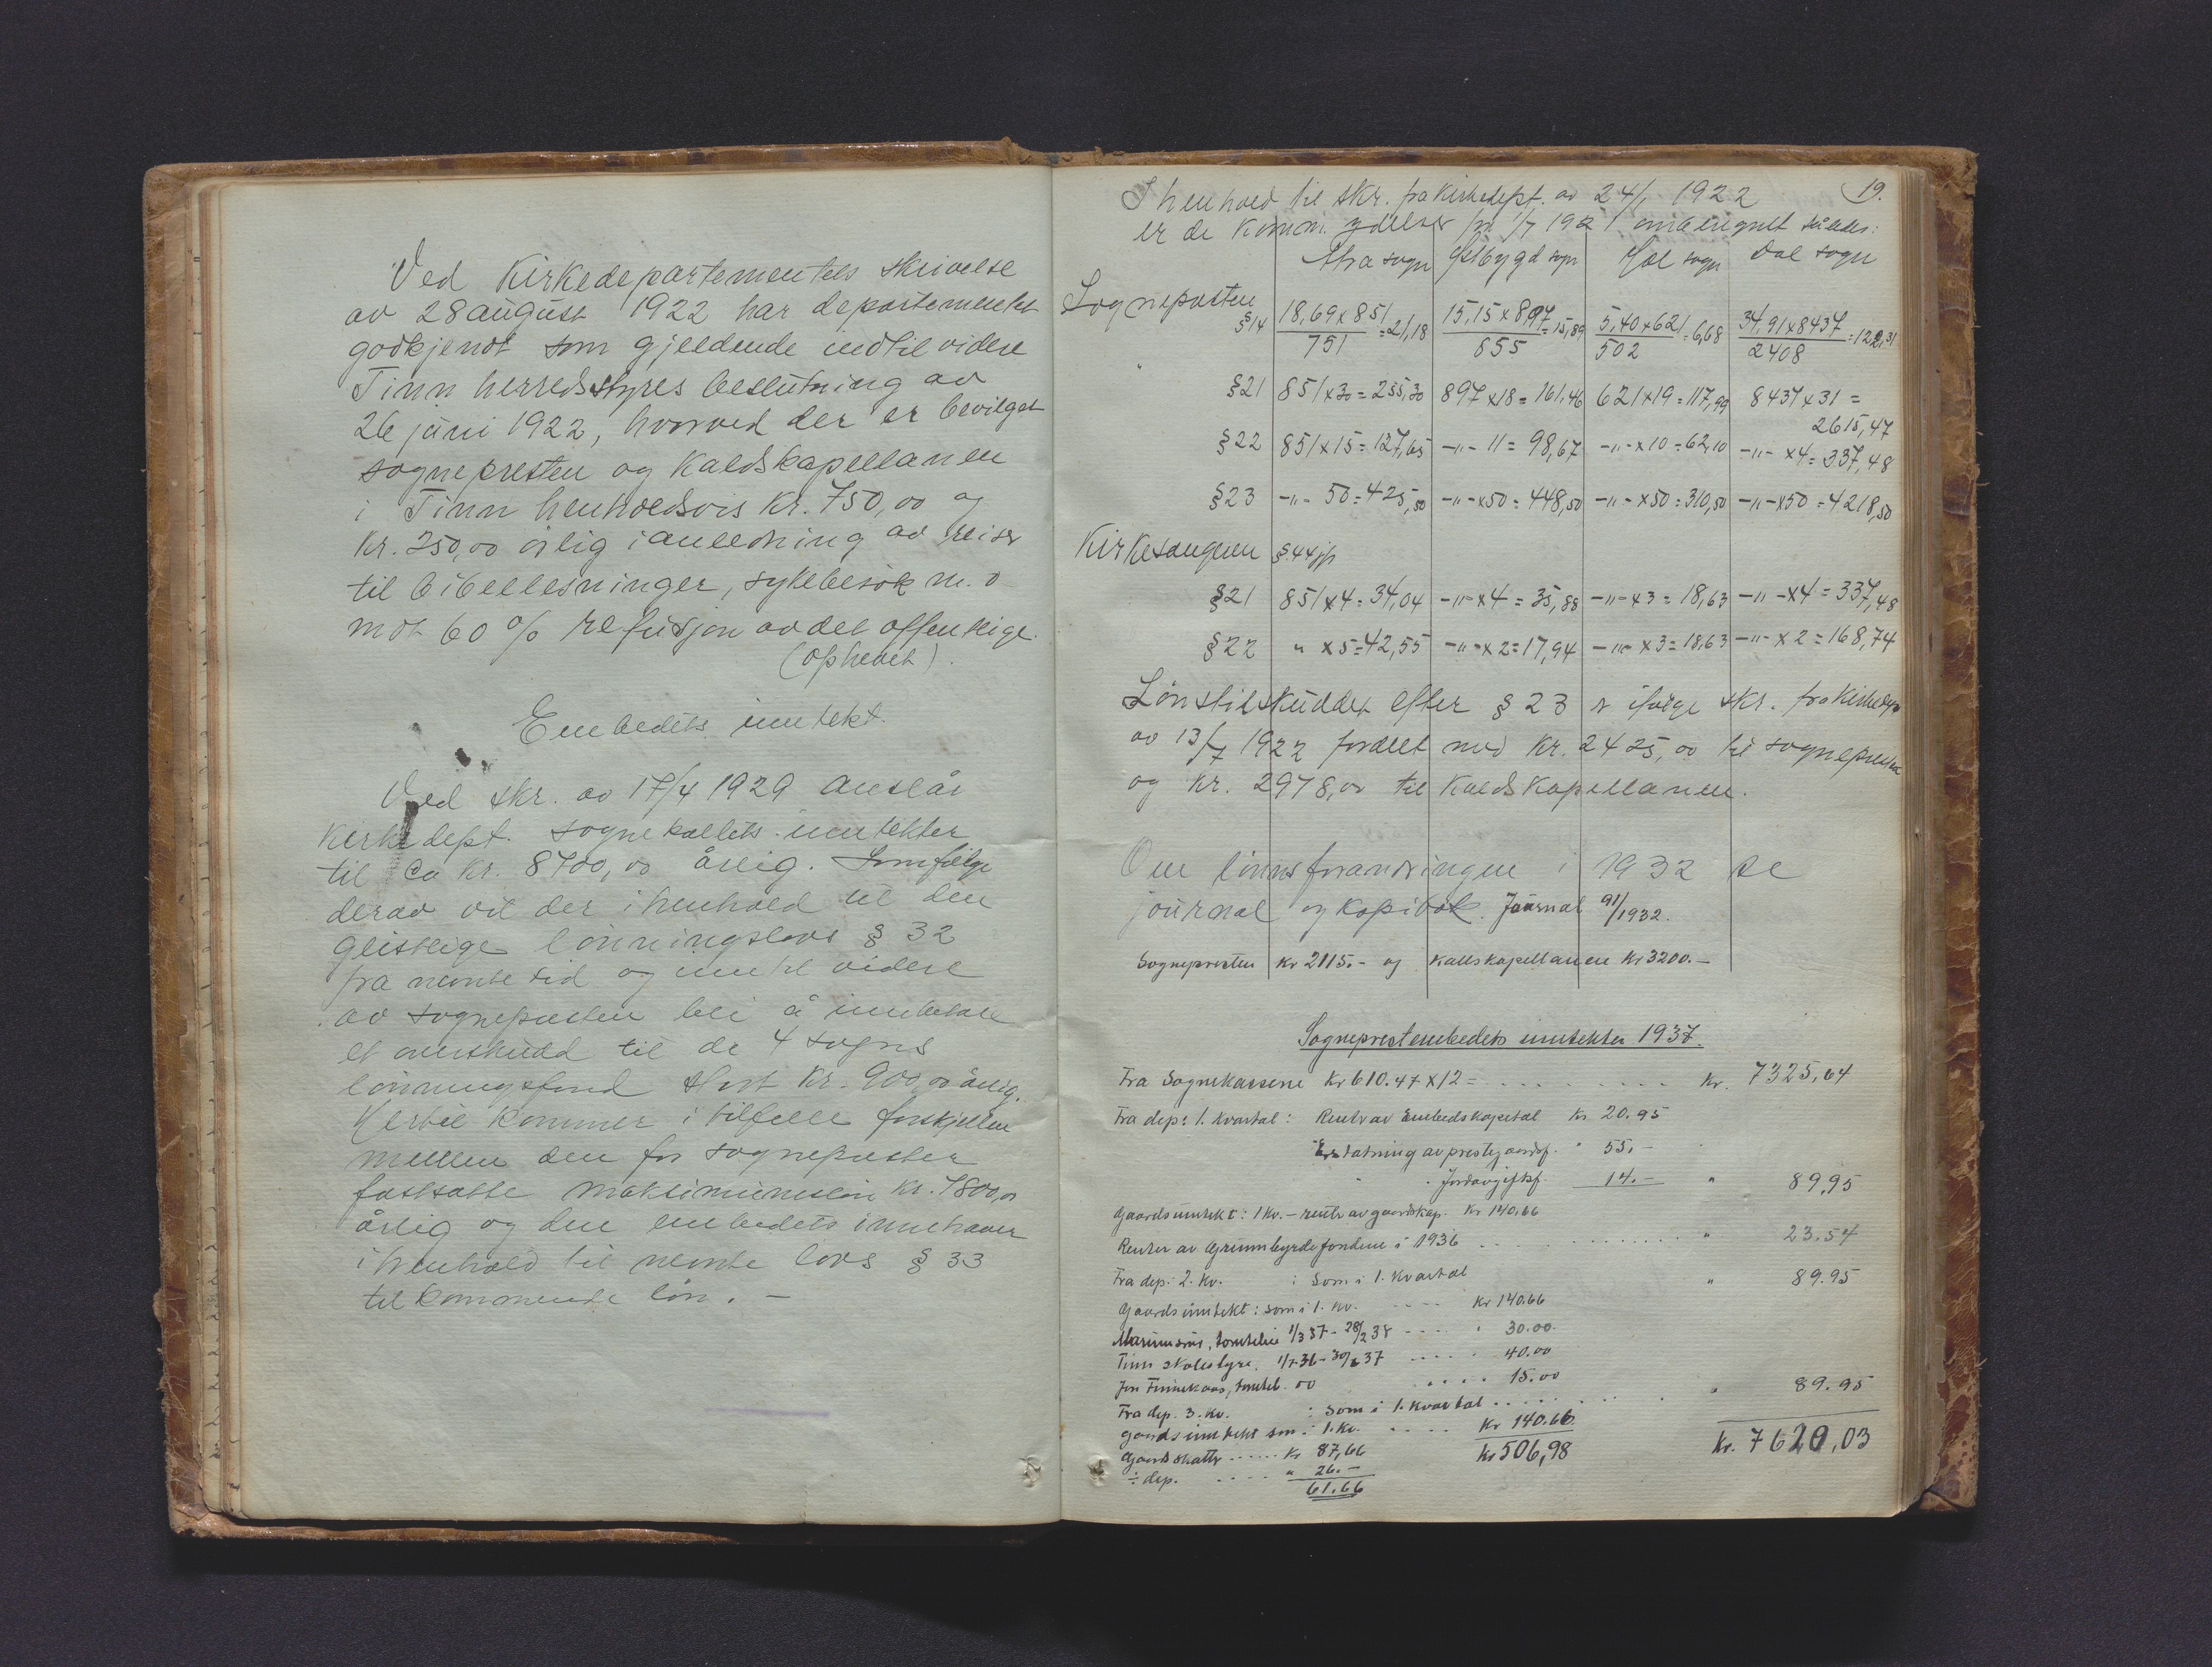 Ved Kirkedepartementets skrivelse
av 28 august 1922 har departementet
godkjendt som gjeldende indtil videre
Tinn herredsstyres beslutning av
26 juni 1922, hvorved der er bevilget
sognepresten og Kaldskapellanen
i Tinn henholdsvis Kr. 750,00 og
Kr. 250,00 årlig i anledning av reiser
til bibellesninger, sykebesøk m. v
mot 60 % refusjon av det offentlige.
(ophevet).
Embedets inntekt.
Ved skr. av 17/4 1929 anslår
Kirkedept. sognekallets inntekter
til ca Kr. 8700,00 årlig. Som følge
derav vil der i henhold til den
geistlige lønningslovs § 32
fra nevnte tid og inntil videre
av sognepresten bli å innbetale
et overskudd til de 4 sogns
lønningsfond stort Kr. 900,00 årlig.
Hertil kommer i tilfelle forskjellen
mellem den for sogneprester
fastsatte maksimumsløn Kr. 7800,00
årlig og den embedets innehaver
i henhold til nevnte lovs § 33
tilkommende løn. –
19.
I henhold til skr. fra Kirkedept. av 24/1 1922
er de komm. ydelser pr 1/7 1921 omberegnet således:
Atra sogn Østbygd sogn Hol sogn Dal sogn
Sognepresten
§14 18,69 x 851 / 751 = 21,18 15,15 x 897 / 855 = 15,89 5,40 x 621 / 502 = 6,68 34,91 x 8437 / 2408 = 122,31
§21 851 x 30 = 255,30 897 x 18 = 161,46 621 x 19 = 117,99 8437 x 31 =
2615,47
§22 851 x 15 = 127,65 -"- 11 = 98,67 -"- x 10 = 62,10 -"- x 4 = 337,48
§23 -"- 50 = 425,50 -"- x 50 = 448,50 -"- x 50 = 310,50 -"- x 50 = 4218,50
Kirkesangeren § 44 jfr
§21 851 x 4 = 34,04 -"- x 4 = 35,88 -"- x 3 = 18,63 -"- x 4 = 337,48
§22 " x 5 = 42,55 -"- x 2 = 17,94 -"- x 3 = 18,63 -"- x 2 = 168,74
Lønstilskuddet efter § 23 er ifølge skr. fra Kirkedept
av 13/7 1922 fordelt med Kr. 2425,00 til sognepresten
og Kr. 2978,00 til Kaldskapellanen.
Om lønnsforandringen i 1932 se
journal og kopibok. Journal 91/1932.
Sognepresten Kr 2115.- og Kallskapellanen Kr 3200.-
Sogneprestembedets inntekter 1937.
Fra Sognekassene Kr 610.47 x 12 = .... .... Kr. 7325,64
Fra dep: 1. Kvartal: Renter av Embedskapital Kr 20.95
Erstatning av prestegaardsf. " 55.-
" Jordavgiftsf. 14.- " 89,95
Gaardsinntekt: 1 Kv. – rente av gaardskap. Kr 140.66
Renter av Grunnbyrdefondene i 1936 ... ........ " 23.54
Fra dep. 2. Kv. : Som i 1. Kvartal " 89.95
Gaardsinntekt: som i 1. Kv. .... Kr 140.66
tomteleie 1/3 37 - 28/2 38 .... " 30.00
Tinn skolestyre, 1/7 36 - 30/6 37 .... " 40.00
Jon tomtel. 00 .... 15.00
Fra dep. 3. Kv. : Som i 1. Kvartal .... " 89.95
Gaardsinntekt som i 1. Kv. .... Kr 140.66
Kr 506,98 Kr. 7620,03
Gaardskatter ..... Kr 87,66
÷ dep. .... " 26.-
61.66